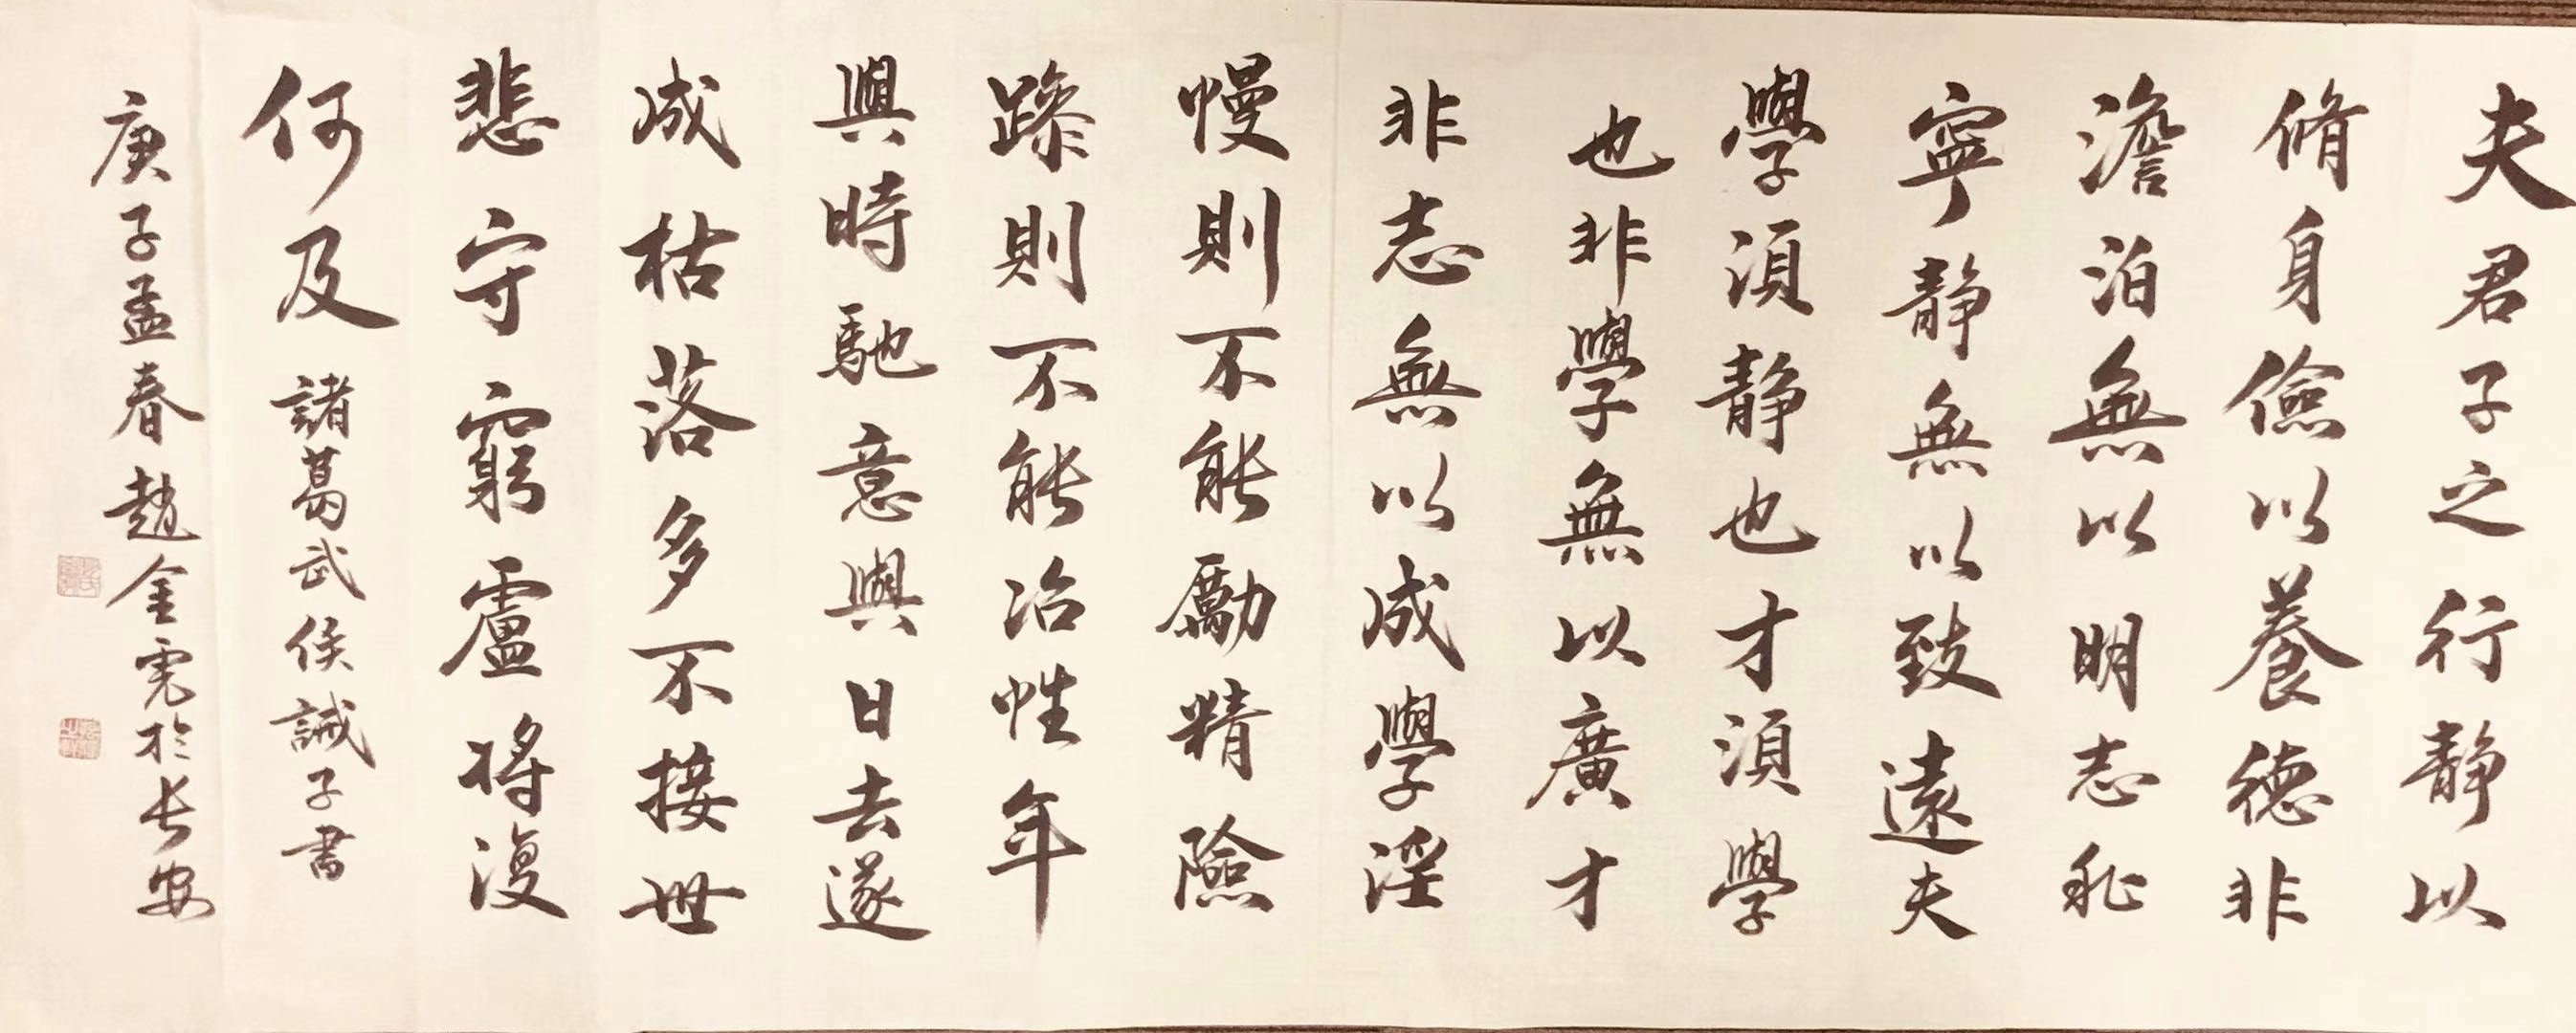 夫君子之行靜以
脩身儉以養德非
澹泊無以明志非
寧靜無以致遠夫
學須靜也才須學
也非學無以廣才
非志無以成學淫
慢則不能勵精險
躁則不能冶性年
與時馳意與日去遂
成枯落多不接世
悲守窮廬將復
何及
諸葛武侯誡子書
庚子孟春趙金霓於长安